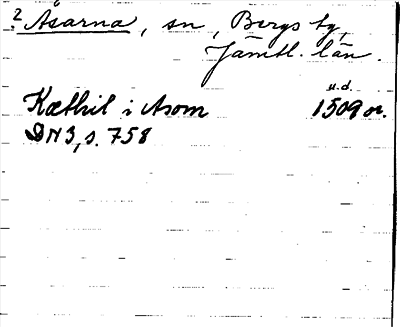 ? Åsarna, sn, Bergs tg,
Jämtl. län.
u.d.
Kæthil i Asom 1509 or.
DN3, s. 758